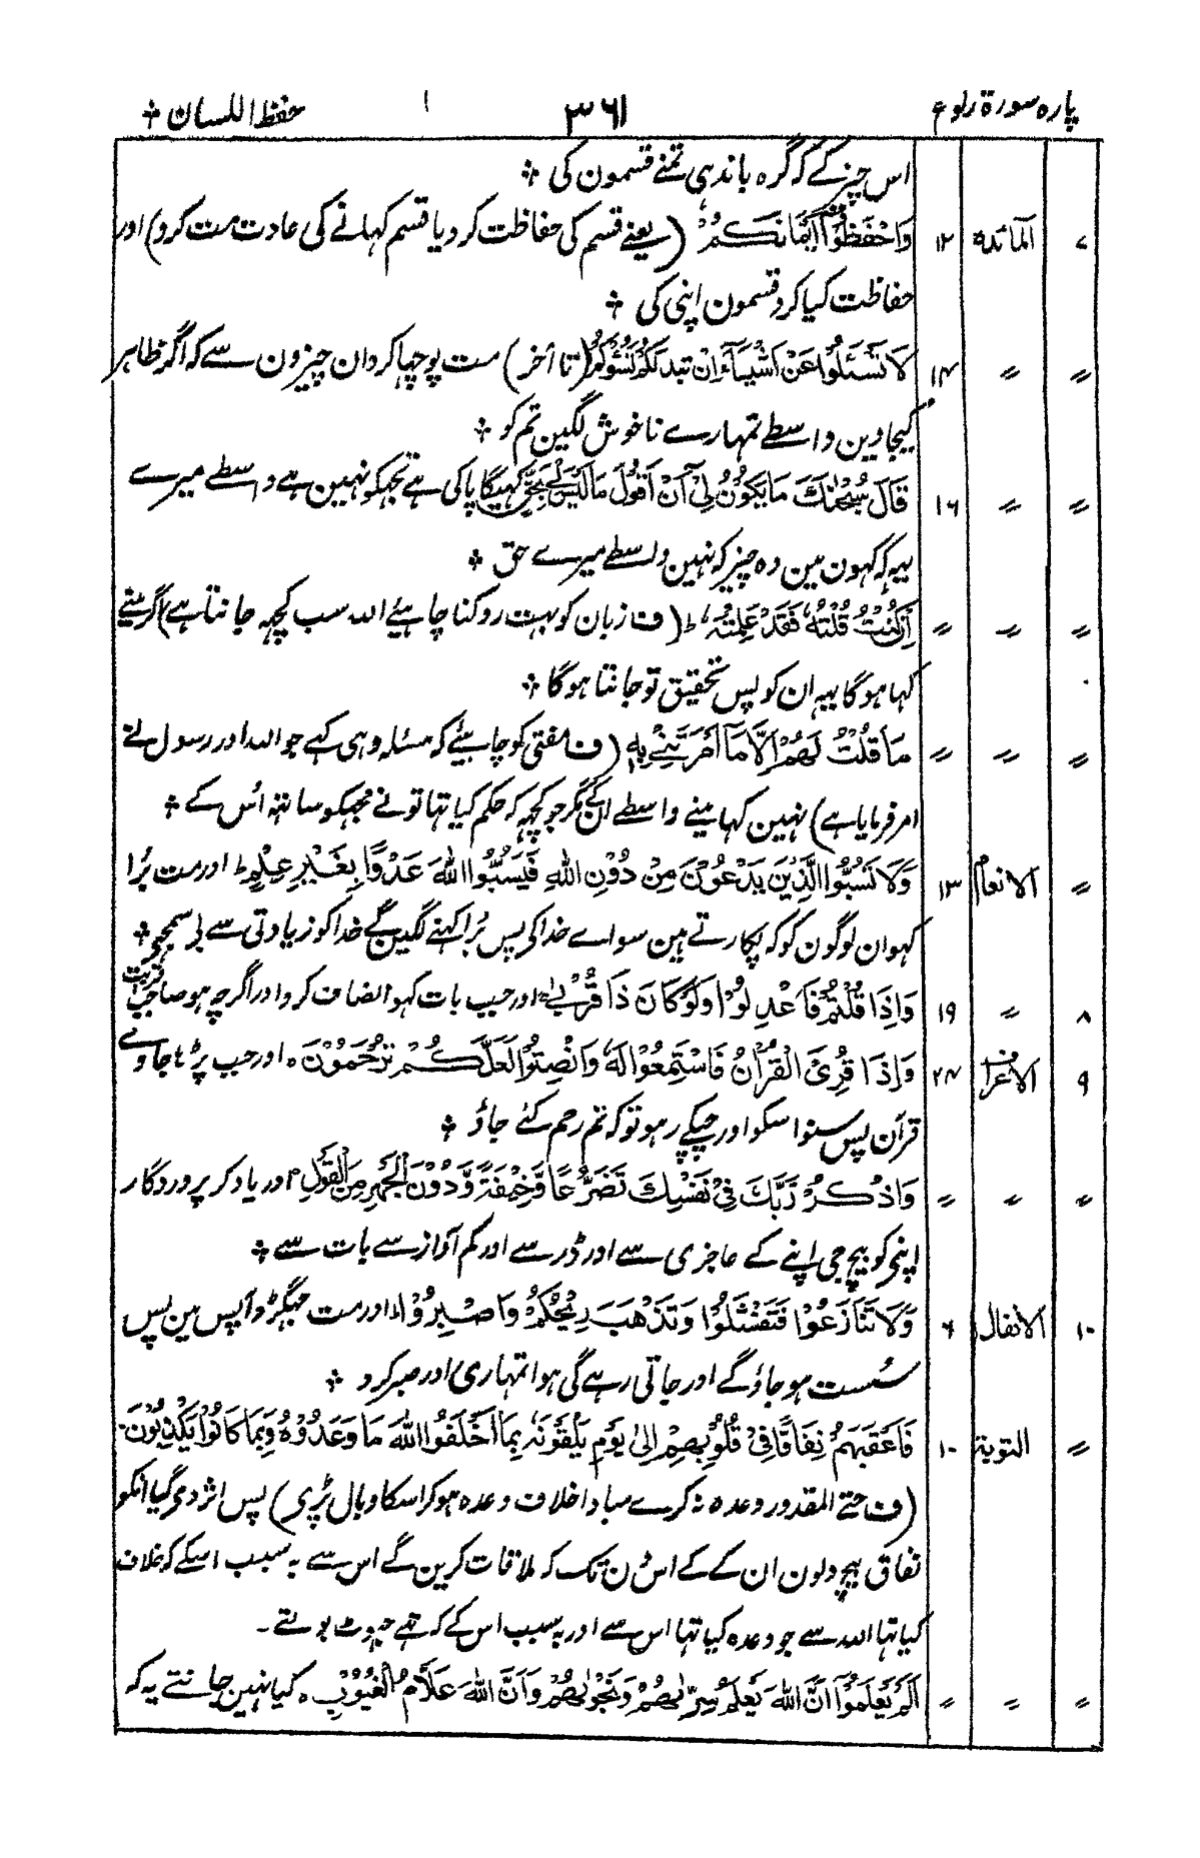 پارہ سورۃ رکوع ۳۶۱ حفظ اللسان
اس چیز کے کہ گرہ باندہی تمنے قسمون کی
۷ المائدہ ۱۲ وَاحْفَظُوْٓا اَيْمَانَكُمْ (یعنے قسم کی حفاظت کرو یا قسم کہانے کی عادت مت کرو) اور
حفاظت کیا کرو قسمون اپنی کی
〃 〃 ۱۴ لَا تَسْـَٔلُوْا عَنْ اَشْيَآءَ اِنْ تُبْدَ لَكُمْ تَسُؤْكُمْ (تا آخر) مت پوچہا کرو ان چیزون سے کہ اگر ظاہر
کیجاوین واسطے تمہارے ناخوش لگین تم کو
〃 〃 ۱۶ قَالَ سُبْحٰنَكَ مَا يَكُوْنُ لِيْٓ اَنْ اَقُوْلَ مَا لَيْسَ لِيْ بِحَقٍّ کہیگا پاکی ہے تجہکو نہین ہے واسطے میرے
یہ کہ کہون مین وہ چیز کہ نہین واسطے میرے حق
〃 〃 〃 اِنْ كُنْتُ قُلْتُهٗ فَقَدْ عَلِمْتَهٗ ط (ف زبان کو بہت روکنا چاہئے اللہ سب کچہہ جانتا ہے) اگر مینے
کہا ہوگا یہ ان کو پس تحقیق تو جانتا ہوگا
〃 〃 〃 مَا قُلْتُ لَهُمْ اِلَّا مَآ اَمَرْتَنِيْ بِهٖ (ف مفتی کو چاہئے کہ مسئلہ وہی کہے جو اللہ اور رسول نے
امر فرمایا ہے) نہین کہا مینے واسطے انکے مگر جو کچہہ کہ حکم کیا تہا تونے مجہکو ساتہہ اُس کے
〃 الانعام ۱۳ وَلَا تَسُبُّوا الَّذِيْنَ يَدْعُوْنَ مِنْ دُوْنِ اللّٰهِ فَيَسُبُّوا اللّٰهَ عَدْوًۢا بِغَيْرِ عِلْمٍ ط اور مت بُرا
کہو ان لوگون کو کہ پکارتے ہین سوائے خدا کی پس بُرا کہنے لگین گے خدا کو زیادتی سے بی سمجہی
۸ 〃 ۱۹ وَاِذَا قُلْتُمْ فَاعْدِلُوْا وَلَوْ كَانَ ذَا قُرْبٰى اور جب بات کہو انصاف کرو اور اگرچہ ہو صاحب قرابت
۹ الاعراف ۲۴ وَاِذَا قُرِئَ الْقُرْاٰنُ فَاسْتَمِعُوْا لَهٗ وَاَنْصِتُوْا لَعَلَّكُمْ تُرْحَمُوْنَ ہ اور جب پڑہا جاوے
قرآن پس سنو اسکو اور چپکے رہو تو کہ تم رحم کئے جاؤ
〃 〃 〃 وَاذْكُرْ رَّبَّكَ فِيْ نَفْسِكَ تَضَرُّعًا وَّخِيْفَةً وَّدُوْنَ الْجَهْرِ مِنَ الْقَوْلِ اور یاد کر پروردگار
اپنی کو بیچ جی اپنے کے عاجزی سے اور ڈر سے اور کم آواز سے بات سے
۱۰ الانفال ۶ وَلَا تَنَازَعُوْا فَتَفْشَلُوْا وَتَذْهَبَ رِيْحُكُمْ وَاصْبِرُوْا ط اور مت جہگڑو آپس مین پس
سُست ہو جاؤگے اور جاتی رہے گی ہوا تمہاری اور صبر کرو
〃 التوبۃ ۱۰ فَاَعْقَبَهُمْ نِفَاقًا فِيْ قُلُوْبِهِمْ اِلٰى يَوْمِ يَلْقَوْنَهٗ بِمَآ اَخْلَفُوا اللّٰهَ مَا وَعَدُوْهُ وَبِمَا كَانُوْا يَكْذِبُوْنَ
(ف حتے المقدور وعدہ نہ کرے مبادا خلاف وعدہ ہوکر اسکا وبال پڑی) پس اثر دی گیا انکو
نفاق بیچ دلون ان کے کے اس دن تک کہ ملاقات کرین گے اس سے بہ سبب اسکے کہ خلاف
کیا تہا اللہ سے جو وعدہ کیا تہا اس سے اور بہ سبب اس کے کہ تہے جہوٹ بولتے ۔
〃 〃 〃 اَلَمْ يَعْلَمُوْٓا اَنَّ اللّٰهَ يَعْلَمُ سِرَّهُمْ وَنَجْوٰىهُمْ وَاَنَّ اللّٰهَ عَلَّامُ الْغُيُوْبِ ہ کیا نہین جانتے یہ کہ